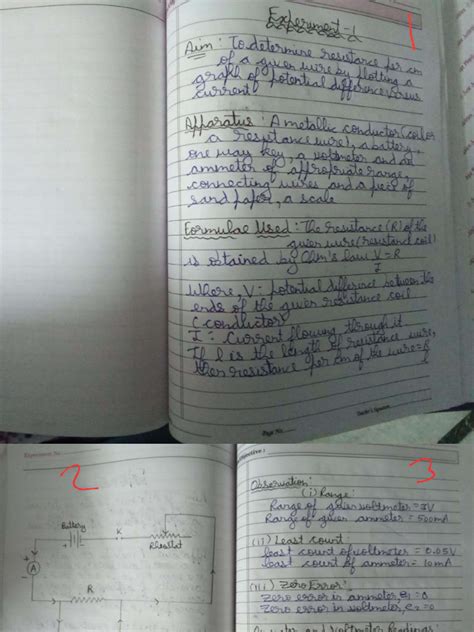 Experiment-1
1
Aim: To determine resistance per cm
of a given wire by plotting a
graph of potential difference versus
current.
Apparatus: A metallic conductor (coil or
a resistance wire), a battery,
one way key, a voltmeter and an
ammeter of appropriate range,
connecting wires and a piece of
sand paper, a scale
Formulae Used: The resistance (R) of the
given wire (resistance coil)
is obtained by Ohm's law V/I = R
Where, V: potential difference between the
ends of the given resistance coil
(conductor)
I: Current flowing through it.
If l is the length of resistance wire,
then resistance per cm of the wire = R/l
Page No.
Teacher's Signature
Experiment No.
2
Battery
K
Rheostat
A
R
3
Observation:
(i) Range:
Range of given voltmeter = 3V
Range of given ammeter = 500mA
(ii) Least count:
Least count of voltmeter = 0.05V
Least count of ammeter = 10mA
(iii) Zero Error:
Zero error in ammeter, e1 = 0
Zero error in voltmeter, e2 = 0
Ammeter and Voltmeter Readings: